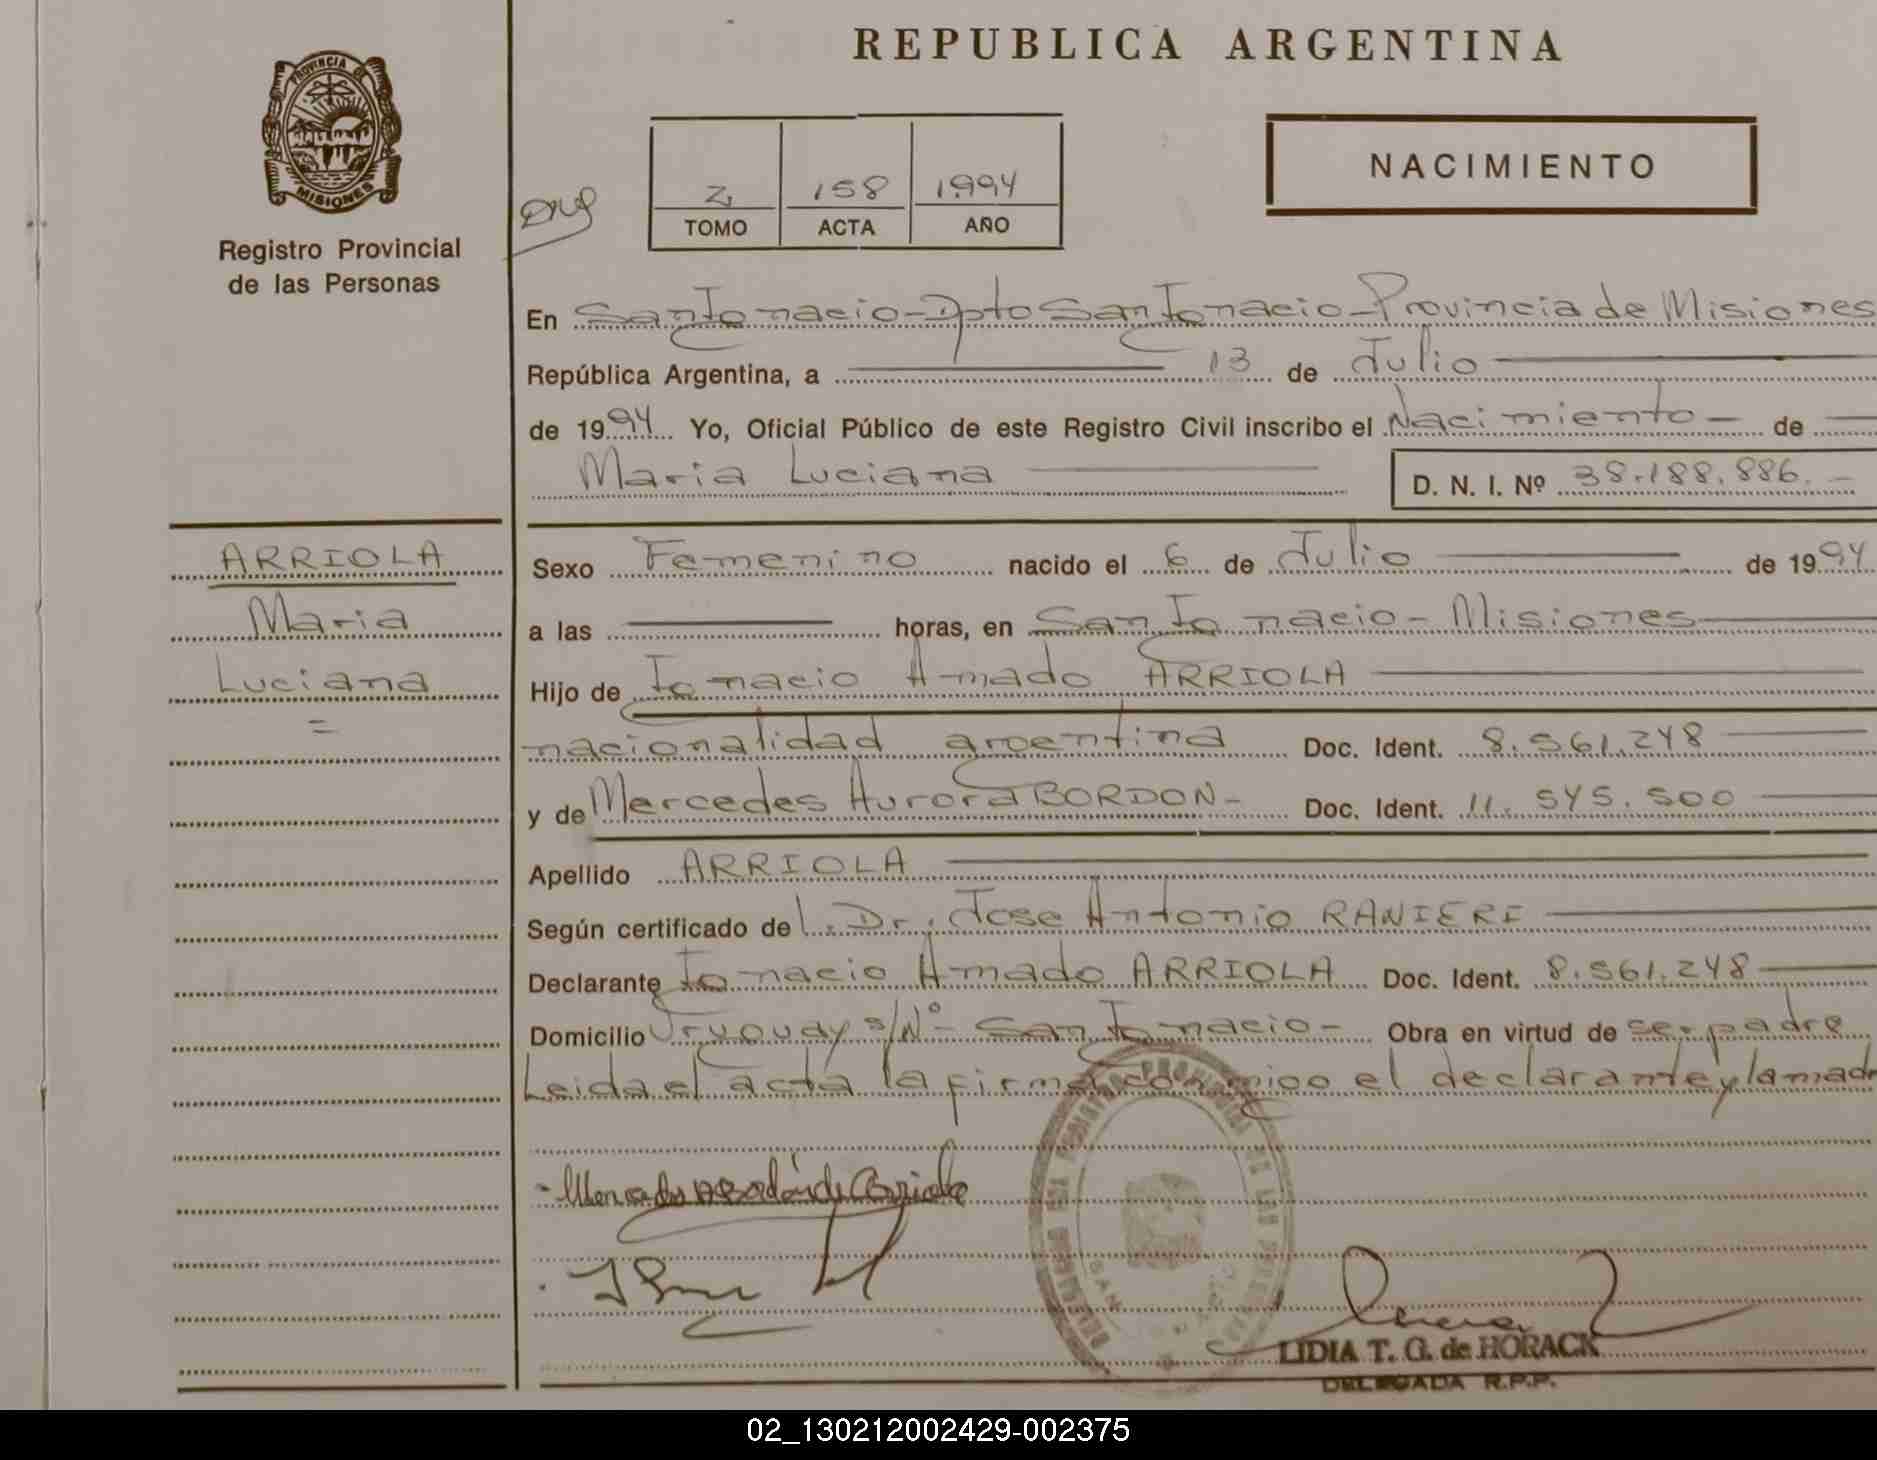 PROVINCIA DE
MISIONES
Registro Provincial
de las Personas
REPUBLICA ARGENTINA
NACIMIENTO
2 158 1994
TOMO ACTA AÑO
En San Ignacio - Dpto San Ignacio - Provincia de Misiones
República Argentina, a 13 de Julio
de 1994 Yo, Oficial Público de este Registro Civil inscribo el Nacimiento - de
Maria Luciana D. N. I. Nº 38.188.886. -
ARRIOLA
Maria
Luciana
=
Sexo Femenino nacido el 6 de Julio de 1994
a las horas, en San Ignacio - Misiones
Hijo de Ignacio Amado ARRIOLA
nacionalidad argentina Doc. Ident. 8.561.248
y de Mercedes Aurora BORDON - Doc. Ident. 11.545.500
Apellido ARRIOLA
Según certificado de l. Dr. Jose Antonio RANIERI
Declarante Ignacio Amado ARRIOLA Doc. Ident. 8.561.248
Domicilio Uruguay s/Nº - San Ignacio - Obra en virtud de ser padre
Leida el acta la firma conmigo el declarante y la madr
LIDIA T. G. de HORACK
DELEGADA R.P.P.
02_130212002429-002375